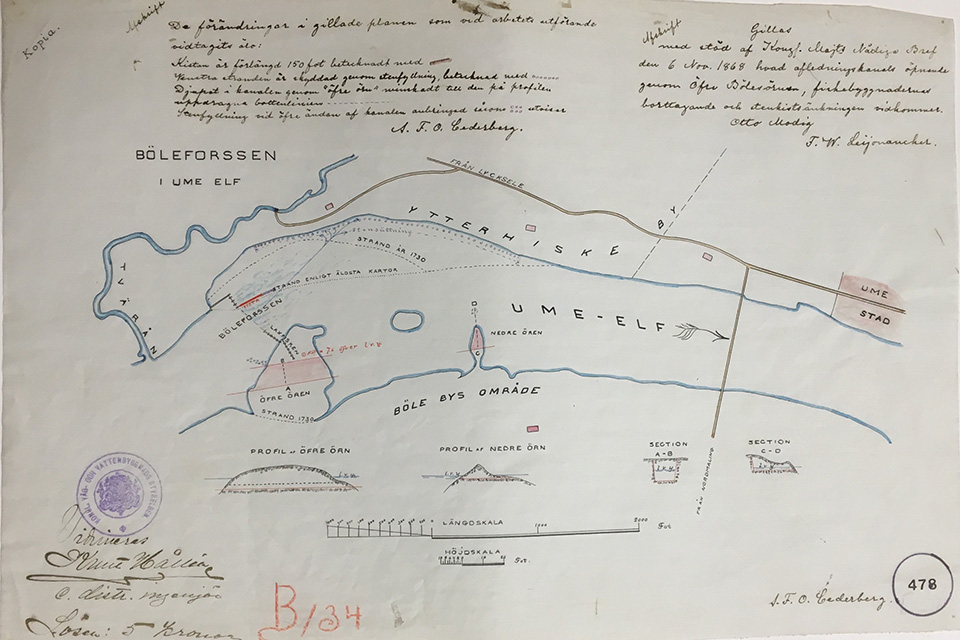 Kopia.
Afskrift
De förändringar i gillade planen som vid arbetets utförande
vidtagits äro:
Kistan är förlängd 150 fot betecknadt med
Venstra stranden är skyddad genom stenfyllning, betecknad med
Djupet i kanalen genom "öfre örn" minskadt till den på profilen
uppdragna bottenlinien
Stenfyllning vid öfre ändan af kanalen anbringad
A. F. O. Cederberg.
Afskrift
Gillas
med stöd af Kongl. Majts Nådiga Bref
den 6 Nov. 1868 hvad afledningskanals öpnande
genom Öfre Bölesören, fiskebyggnadernas
borttagande och stenkistsänkningen vidkommer.
Otto Modig
F. W. Leijonancker.
BÖLEFORSSEN
I UME ELF
FRÅN LYCKSELE
YTTERHISKE BY
Stensättning
STRAND ÅR 1730
STRAND ENLIGT ÄLDSTA KARTOR
TVÄRÅN
BÖLEFORSSEN
UME-ELF
UME
STAD
D
NEDRE ÖREN
C
B
A
ÖFRE ÖREN
STRAND 1730
BÖLE BYS OMRÅDE
FRÅN NORDMALING
PROFIL AF ÖFRE ÖRN
L.V.Y.
PROFIL AF NEDRE ÖRN
L.V.Y.
SECTION
A-B
L.V.Y.
SECTION
C-D
L.V.Y.
LÄNGDSKALA
1000
2000
Fot.
HÖJDSKALA
Fot.
KONGL. VÄG- OCH VATTENBYGGNADSSTYRELSEN
Vidimeras
Knut Hallén
c. distr. ingenjör
Lösen: 5 kronor
B/34
A. F. O. Cederberg.
478